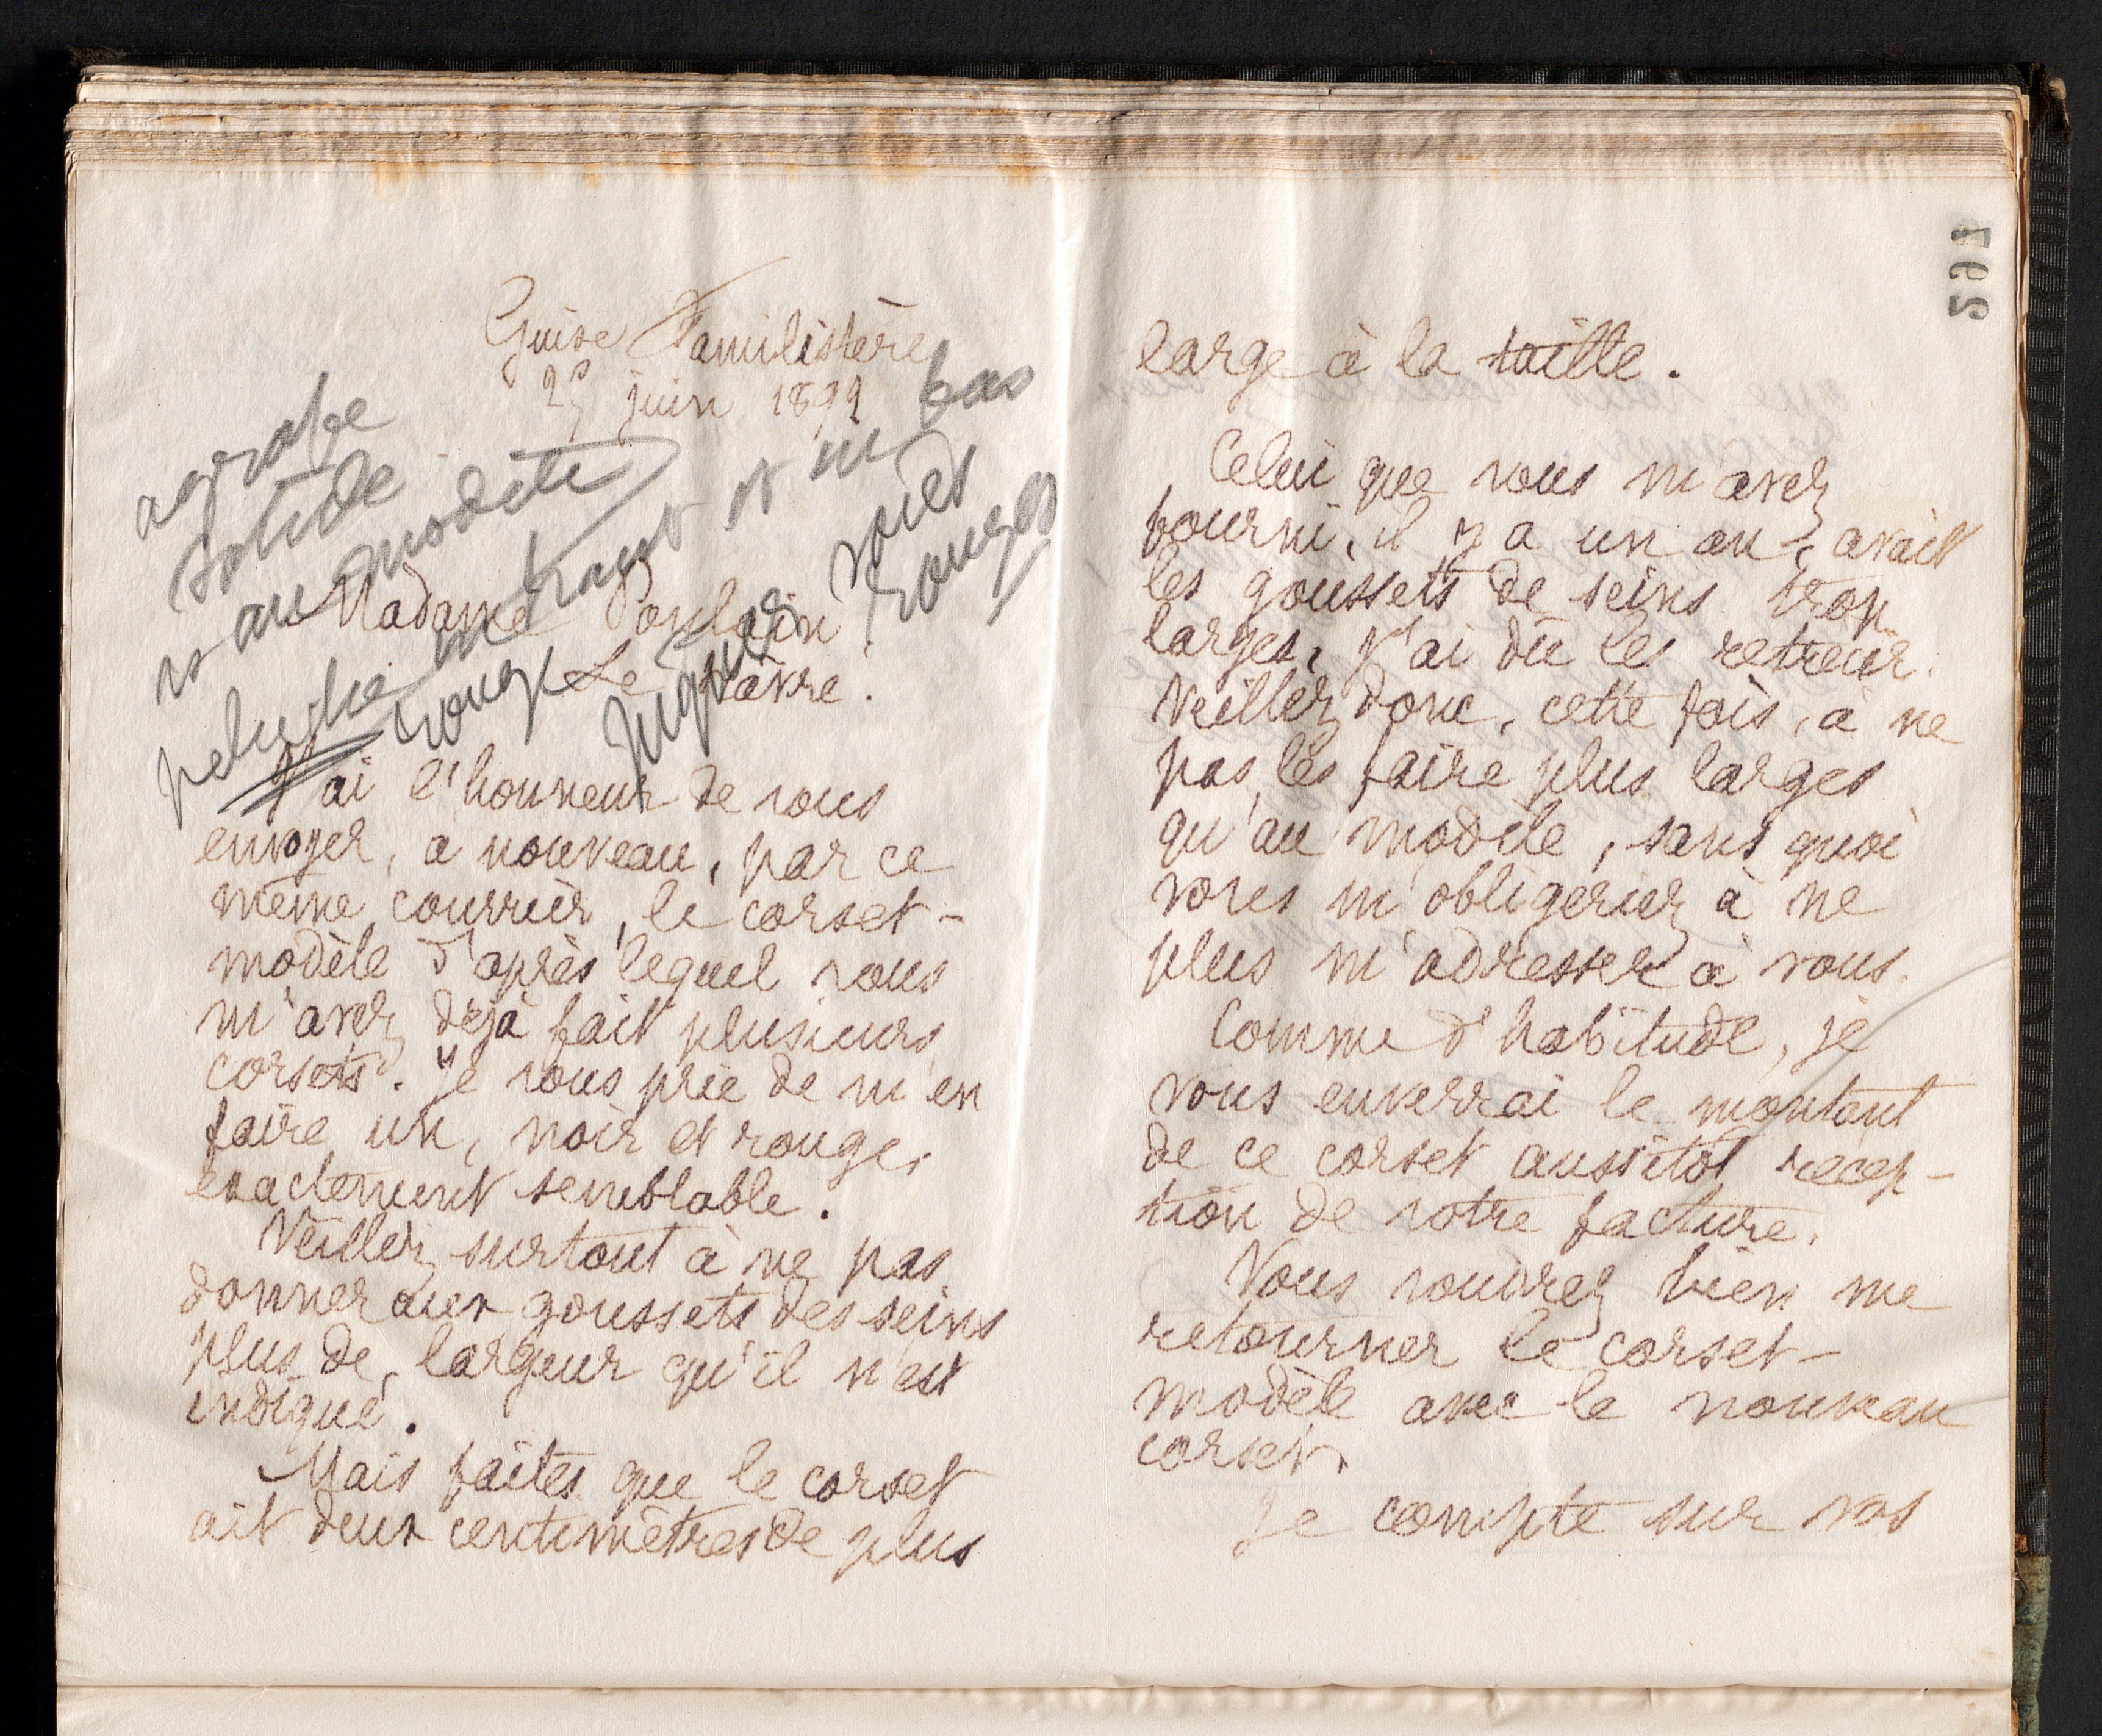 Guise Familistère
25 juin 1892
agrafe
solide
au modèle
peluche en haut et en bas
rouge
piqûres soies
rouges
Madame Poulain
Le Hâvre.
J'ai l'honneur de vous
envoyer, à nouveau, par ce
même courrier, le corset-
modèle d'après lequel vous
m'avez déjà fait plusieurs
corsets. Je vous prie de m'en
faire un, noir et rouge,
exactement semblable.
Veillez surtout à ne pas
donner aux goussets des seins
plus de largeur qu'il n'est
indiqué.
Mais faites que le corset
ait deux centimètres de plus
502
large à la taille.
Celui que vous m'avez
fourni, il y a un an, avait
les goussets de seins trop
larges, j'ai dû les retrécir.
Veillez donc, cette fois, à ne
pas les faire plus larges
qu'au modèle, sans quoi
vous m'obligeriez à ne
plus m'adresser à vous.
Comme d'habitude, je
vous enverrai le montant
de ce corset aussitôt récep-
tion de votre facture.
Vous voudrez bien me
retourner le corset-
modèle avec le nouveau
corset.
Je compte sur vos